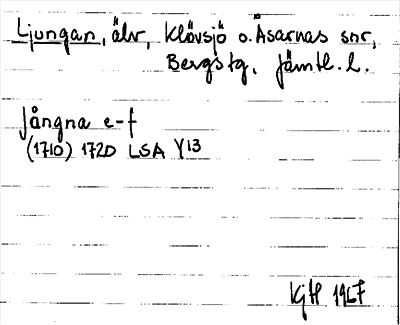 Ljungan, älv, Klövsjö o. Åsarnas snr,
Bergstg, Jämtl. l.
Jångna e-f
(1710) 1720 LSA Y13
1967